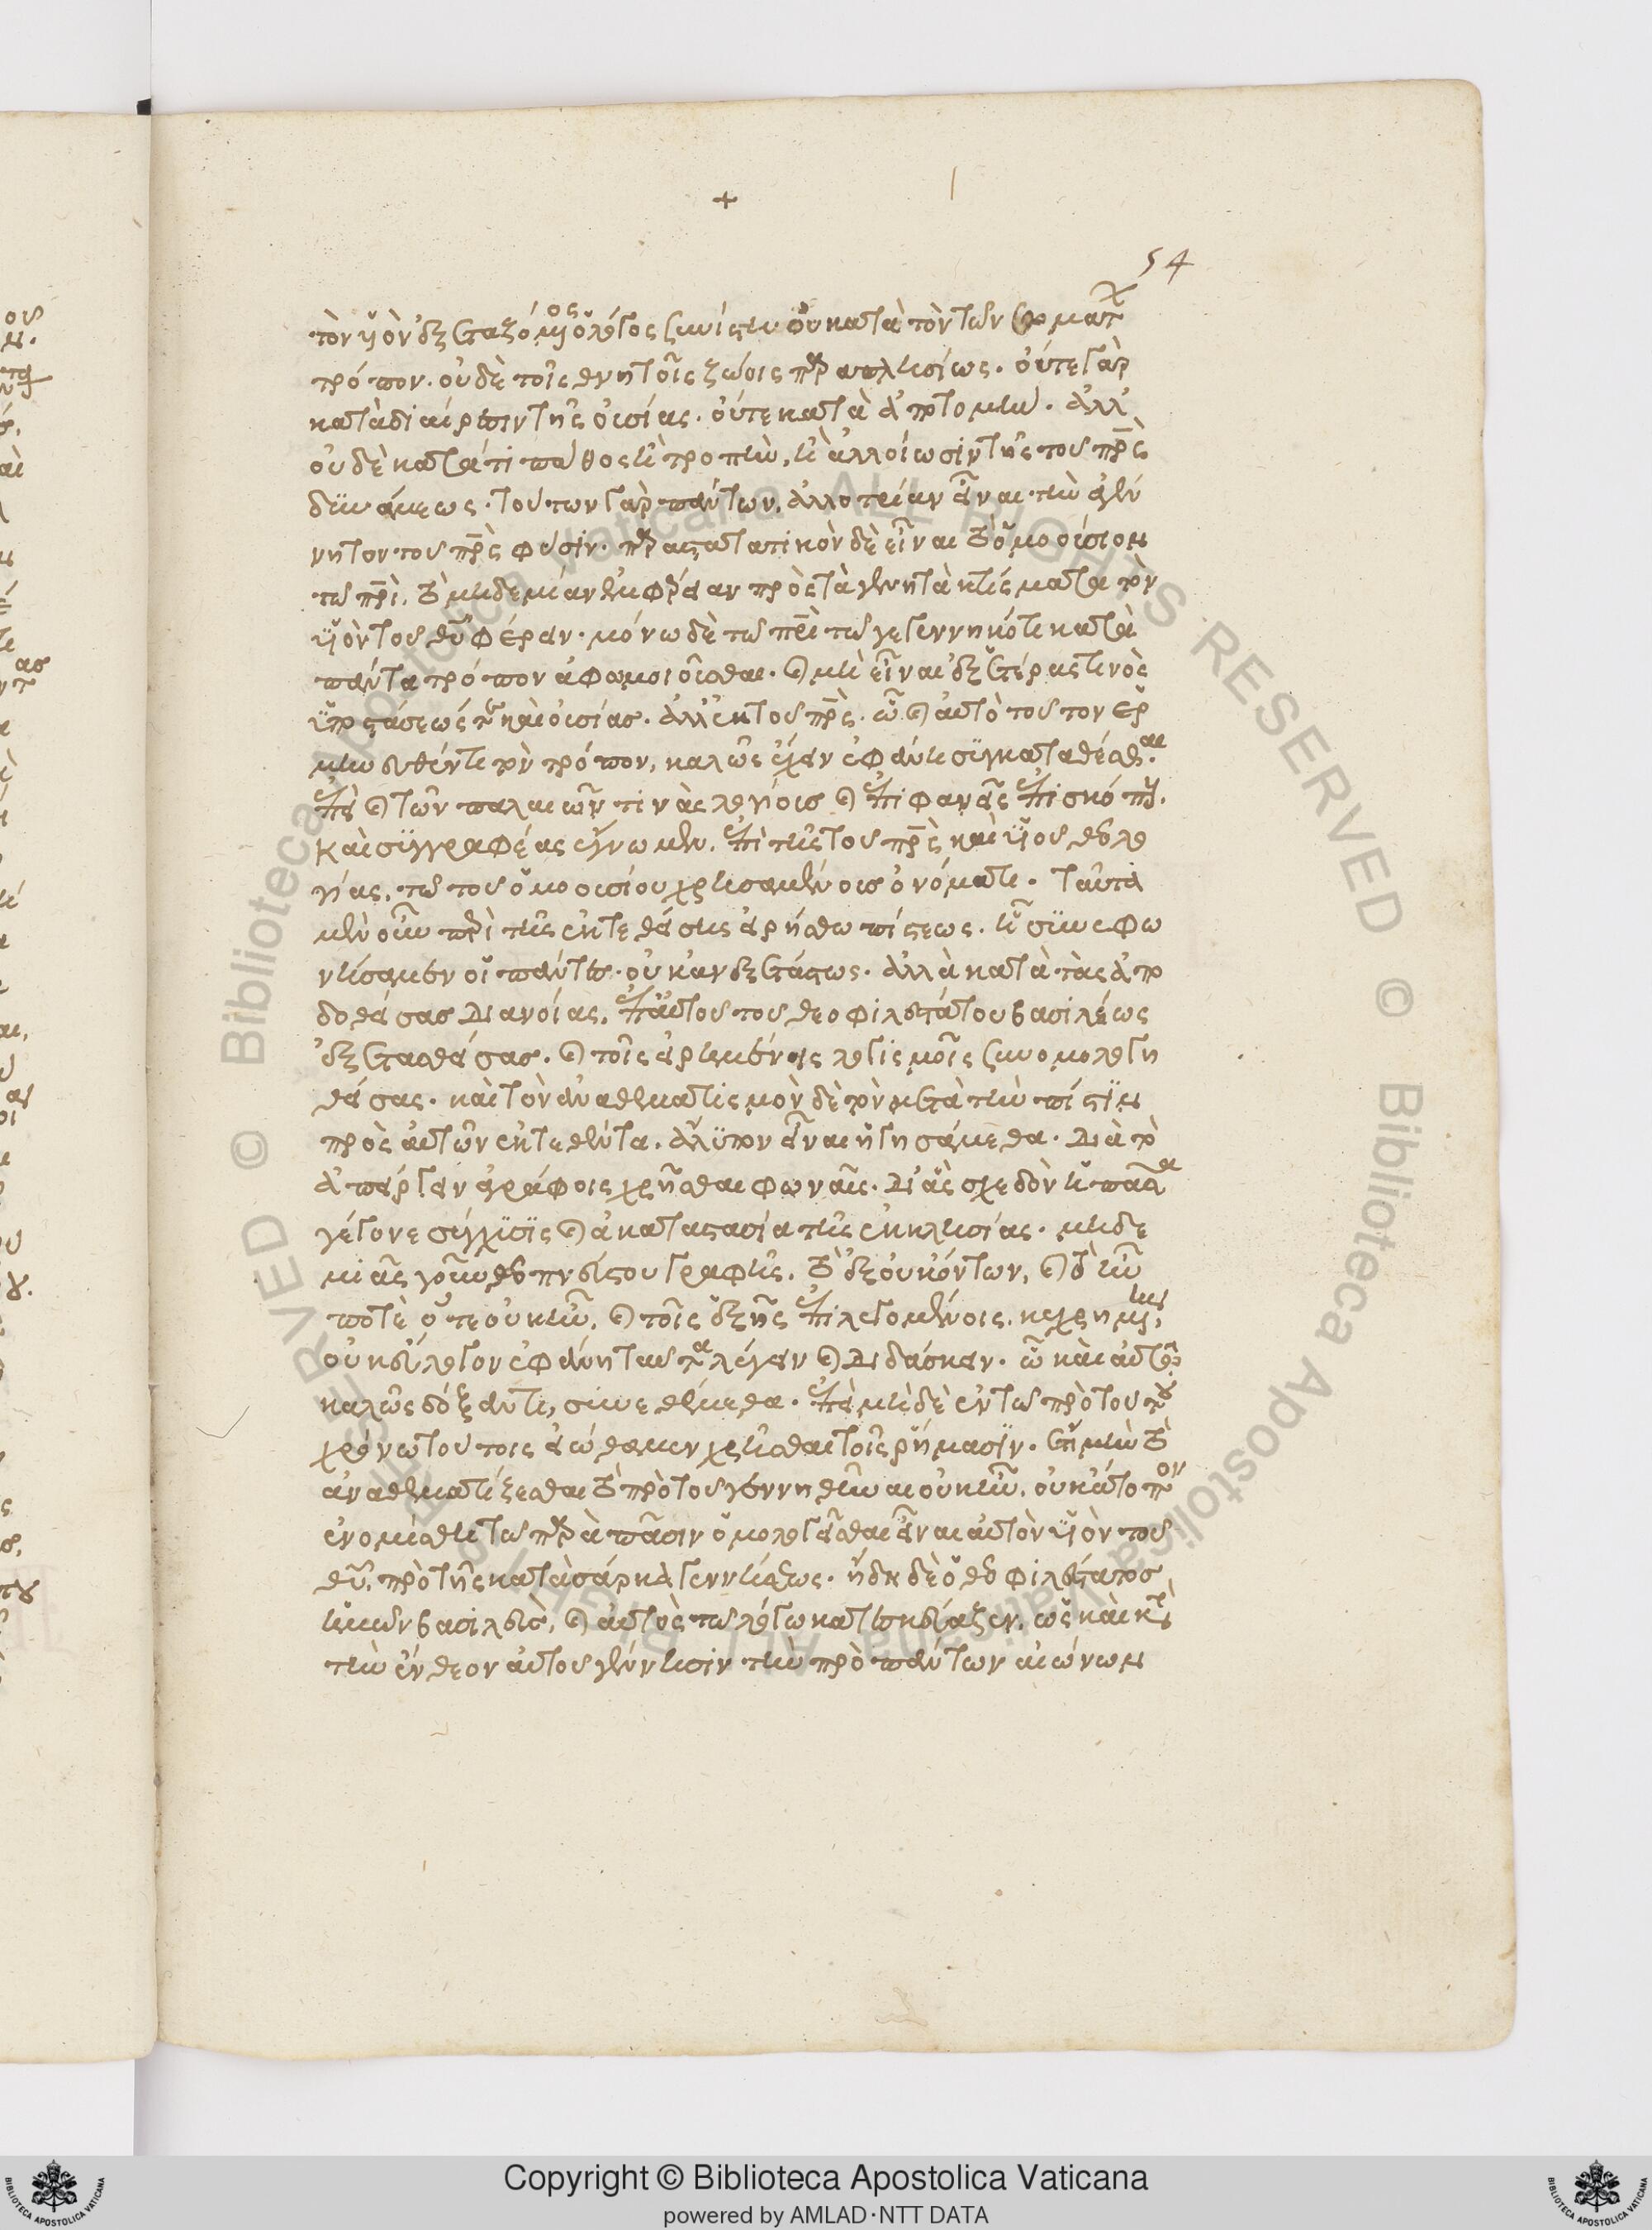 +
54
τὸν υἱὸν ἐξεταζόμενος ὁ λόγος συνίστησιν οὐ κατὰ τὸν τῶν σωμάτων
τρόπον. οὐδὲ τοῖς θνητοῖς ζώοις παραπλησίως. οὔτε γὰρ
κατὰ διαίρεσιν τῆς οὐσίας. οὔτε κατὰ ἀποτομὴν. ἀλλ'
οὐδὲ κατά τι πάθος ἢ τροπὴν, ἢ ἀλλοίωσιν τῆς τοῦ πρς
δυνάμεως. τούτων γὰρ πάντων, ἀλλοτρίαν εἶναι τὴν ἀγέν
νητον τοῦ πρς φύσιν. παραστατικὸν δὲ εἶναι τὸ ὁμοούσιον
τῷ πρι, τὸ μηδεμίαν ἐμφέρειαν πρὸς τὰ γενητὰ κτίσματα τὸν
υἱὸν τοῦ θυ φέρειν. μόνω δὲ τῷ πρι τῷ γεγεννηκότι κατὰ
πάντα τρόπον ἀφωμοιῶσθαι. καὶ μὴ εἶναι ἐξ ἑτέρας τινὸς
ὑποστάσεώς τε καὶ οὐσίας. ἀλλ' ἐκ τοῦ πρς. ὧ καὶ αὐτὸ τοῦτον ἑρ
μηνευθέντι τὸν τρόπον, καλῶς ἔχειν ἐφάνη συγκαταθέσθαι.
ἐπεὶ καὶ τῶν παλαιῶν τινὰς λογίους καὶ ἐπιφανεῖς ἐπισκόπους.
καὶ συγγραφέας ἔγνωμεν, ἐπὶ τῆς τοῦ πρς καὶ υἱοῦ θεολο
γίας, τῷ τοῦ ὁμοουσίου χρησαμένους ὀνόματι. ταῦτα
μὲν οὖν περὶ τῆς ἐκτεθείσης εἰρήσθω πίστεως. ἧ συνεφω
νήσαμεν οἱ πάντες. οὐκ ἀνεξετάστως. ἀλλὰ κατὰ τὰς ἀπο
δοθείσας διανοίας, ἐπ' αὐτοῦ τοῦ θεοφιλεστάτου βασιλέως
ἐξετασθείσας. καὶ τοῖς εἰρημένοις λογισμοῖς συνομολογη
θείσας. καὶ τὸν ἀναθεματισμὸν δὲ τὸν μετὰ τὴν πίστιν
πρὸς αὐτῶν ἐκτεθέντα, ἄλυπον εἶναι ἡγησάμεθα. διὰ τὸ
ἀπείργειν ἀγράφοις χρῆσθαι φωναῖς. δι' ἃς σχεδὸν ἡ πᾶσα
γέγονε σύγχυσις καὶ ἀκαταστασία τῆς ἐκκλησίας. μηδε
μιᾶς γοῦν θεοπνεύστου γραφῆς, τὸ ἐξ οὐκ ὄντων, καὶ τὸ ἦν
ποτὲ ὅτε οὐκ ἦν, καὶ τοῖς ἑξῆς ἐπιλεγομένοις, κεχρημένης,
οὐκ εὔλογον ἐφάνη ταῦτα λέγειν καὶ διδάσκειν. ὧ καὶ αὐτῷ
καλῶς δόξαντι, συνεθέμεθα. ἐπεὶ μὴ δὲ ἐν τῷ πρὸ τούτου
χρόνω τούτοις εἰώθαμεν χρῆσθαι τοῖς ῥήμασιν. ἔτι μὴν τὸ
ἀναθεματίζεσθαι τὸ πρὸ τοῦ γεννηθῆναι οὐκ ἦν, οὐκ ἄτοπον
ἐνομίσθη τῷ παρὰ πᾶσιν ὁμολογεῖσθαι εἶναι αὐτὸν υἱὸν τοῦ
θυ, πρὸ τῆς κατὰ σάρκα γεννήσεως. ἤδη δὲ ὁ θεοφιλέστατος
ἡμῶν βασιλεὺς, καὶ αὐτὸς τῷ λόγω κατεσκεύαζεν, ὡς καὶ κατὰ
τὴν ἔνθεον αὐτοῦ γέννησιν τὴν πρὸ πάντων αἰώνων
Copyright © Biblioteca Apostolica Vaticana
powered by AMLAD·NTT DATA